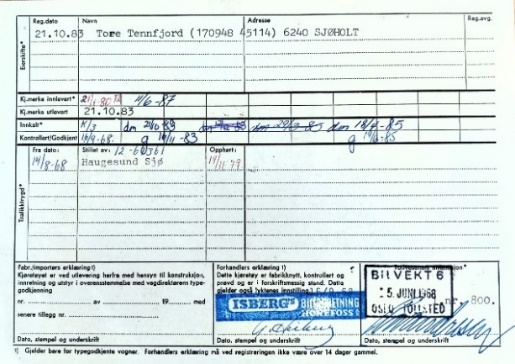 Reg.dato Navn Adresse Reg.avg.
21.10.83 Tore Tennfjord (170948 45114) 6240 SJØHOLT
Eierskifte*
Kj.merke innlevert* 4/6-87
Kj.merke utlevert 21.10.83
Innkalt* den den 18/4-85
Kontrollert/Godkjent 16/9-68. g 16/11-83 g
Fra dato: Stillet av: Opphørt:
14/8-68 Haugesund Sjø
Trafikktrygd*
Fabr./importørs erklæring 1)
Kjøretøyet er ved utlevering herfra med hensyn til konstruksjon,
innretning og utstyr i overensstemmelse med vegdirektørens type-
godkjenning
nr. av 19 med
senere tillegg nr.
Dato, stempel og underskrift
Forhandlers erklæring 1)
Dette kjøretøy er fabrikknytt, kontrollert og
prøvd og er i forskriftsmessig stand. Dette
gjelder også lyktenes innstilling
ISBERG's
Dato, stempel og underskrift
BILVEKT 6
5. JUNI 1968
OSLO TOLLSTED
nr. 800.
Dato, stempel og underskrift
1) Gjelder bare for typegodkjente vogner. Forhandlers erklæring må ved registreringen ikke være over 14 dager gammel.